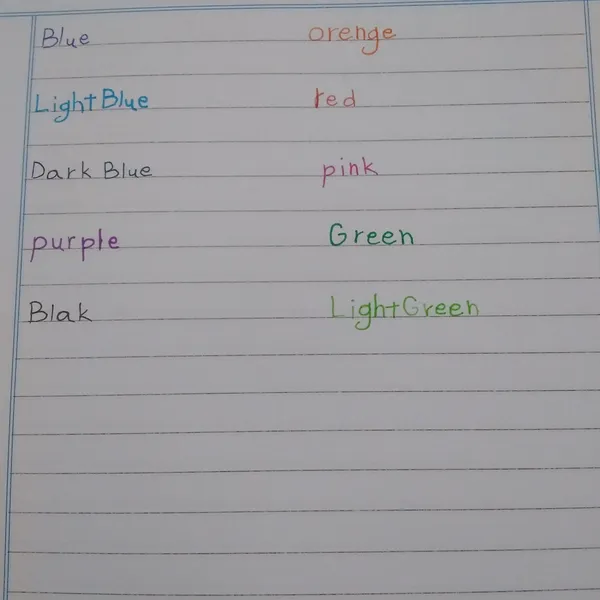 Blue orenge
Light Blue red
Dark Blue pink
purple Green
Blak Light Green